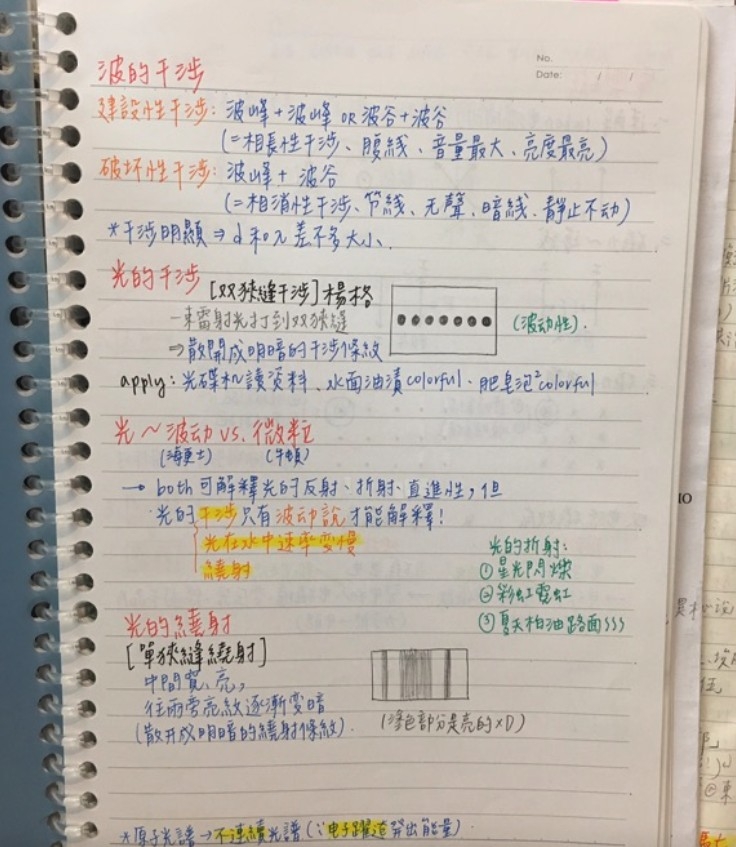 No.
Date: / /
波的干涉
建設性干涉：波峰+波峰 OR 波谷+波谷
(=相長性干涉、腹線、音量最大、亮度最亮)
破坏性干涉：波峰+ 波谷
(=相消性干涉、节線、无聲、暗線、靜止不动)
*干涉明顯⇒d和λ差不多大小.
光的干涉 [双狹縫干涉]楊格
一束雷射光打到双狹縫
(波动性).
⇒散開成明暗的干涉條紋
apply：光碟机讀资料、水面油漬colorful、肥皂泡²colorful
光～波动 vs. 微粒
(海更士) (牛頓)
→ both可解釋光的反射、折射、直進性，但
光的干涉只有波动說才能解釋!
光在水中速率变慢
繞射
光的折射：
①星光閃爍
②彩虹霓虹
③夏天柏油路面sss
光的繞射
[單狹縫繞射]
中間寬、亮，
往兩旁亮紋逐漸变暗
(散开成明暗的繞射條紋).
(塗色部分是亮的×D)
*原子光譜→不連續光譜(∵电子躍遷釋出能量).
10